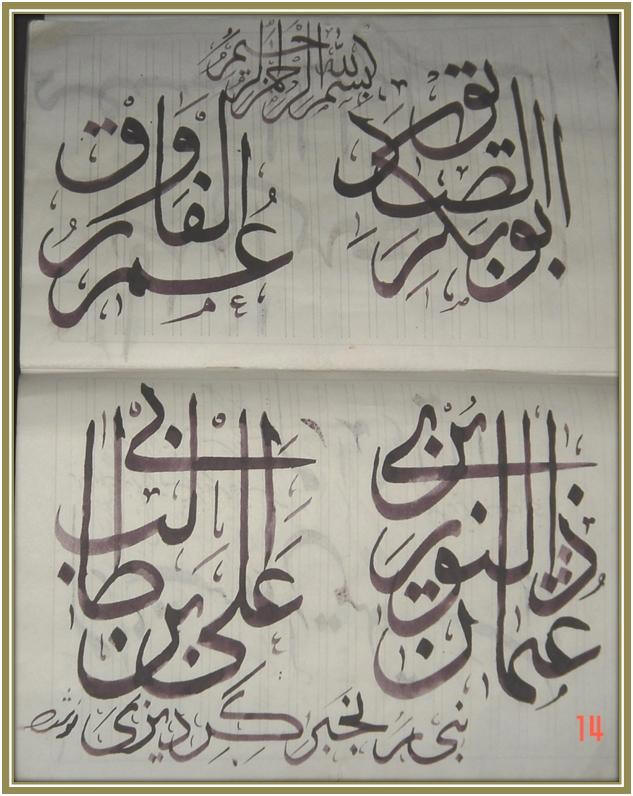 بسم الله الرحمن الرحيم
ابوبكر الصديق
عمر الفاروق
عثمان ذالنورين
علی بن ابی طالب
نبی گردیزی
14